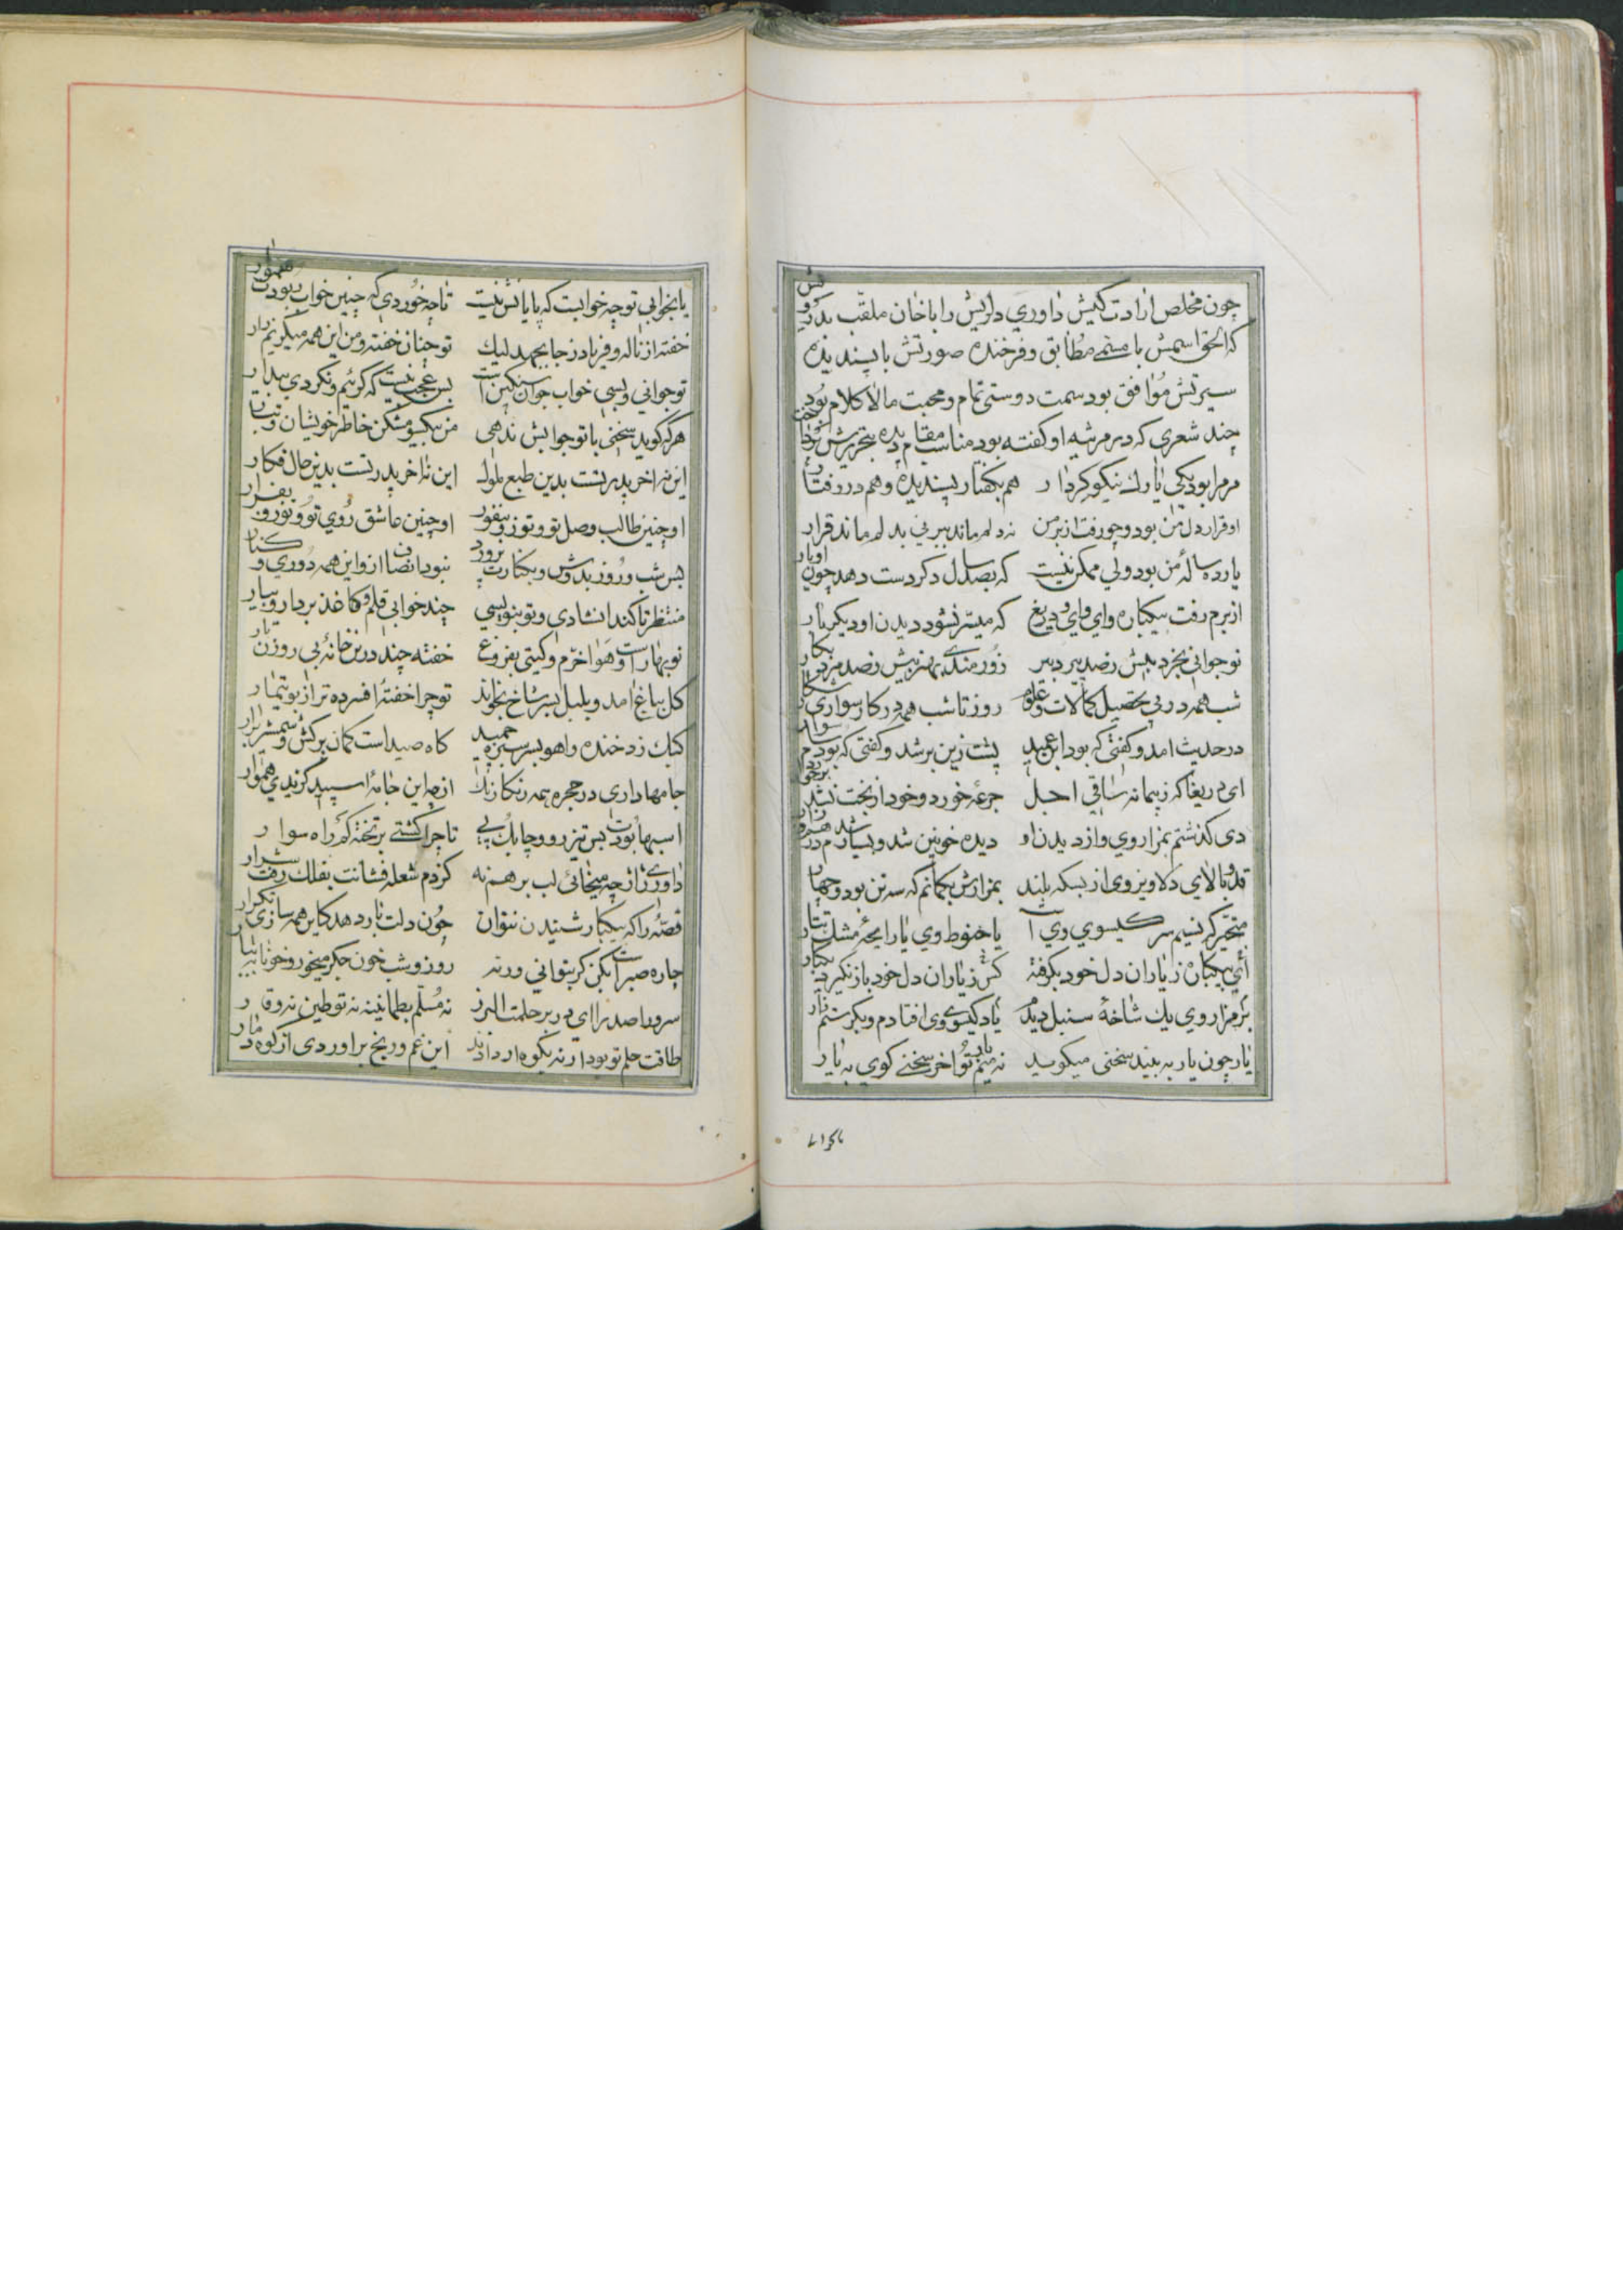 چون مخلص ارادت کیش داوری دلریش را با خان ملقب بدرویش
که الحق اسمش با مسمی مطابق و فرخنده صورتش با پسندیده
سیرتش موافق بود سمت دوستی تمام و محبت مالا کلام بود
چند شعری که در مرثیه او کفته بود مناسب مقام دیده بتحریرش پرداخت
مر مرا بود یکی یارک نیکو کردار هم بکفتار پسندیده و هم در رفتار
او قرار دل من بود و چو رفت از بر من نه دلم ماند ببر نی بدلم ماند قرار
یار ده ساله من بود ولی ممکن نیست که بصد سال دکر دست دهد چون او یار
از برم رفت بیکباره وای وای و دریغ که میسر نشود دیدن او دیکر بار
نوجوانی بخرد بیش ز صد پیر دبیر زورمندی بهنر بیش ز صد مرد
شب همه در پی تحصیل کمالات و علوم روز تا شب همه در کار سواری
در حدیث امد و کفتی که بود ابن عمید پشت زین بر شد و کفتی که بود سام سوار
ای دریغا که ز پیمانه ساقی اجل جرعه خورد و خود از بخت نشد برخوردار
دی کذشتم بمزار وی و از دیدن او دیده خونین شد و بسیار شدم
قد و بالای دلاویز وی از بسکه بلند بمزارش بکمانم که سه تن بود و چهار
متحیر که نسیم سر کیسوی وی است یا حنوط وی یا رایحه مشک تتار
ای بیکبار ز یاران دل خود بکرفته کس ز یاران دل خود باز نکیرد یکبار
بر مزار وی یک شاخه سنبل دیدم یاد کیسوی وی افتادم و بکرستم زار
یار چون یار به بیند سخنی میکوید نه منم یار تو اخر سخنی کوی به یار
یا بخوابی تو چه خوابست که پایانش نیست تا چه خوردی که چنین خواب ربودت
خفته از ناله و فریاد ز جا بجهد لیک تو چنان خفته و من این همه میکریم زار
تو جوانی و بسی خواب جوان سنکین است بس عجب نیست که کریم و نکردی بیدار
هر که کوید سخنی با تو جوابش ندهی من بیکسو مشکن خاطر خویشان و تبار
این نه اخر پدر تست بدین طبع ملول این نه اخر پدر تست بدین حال فکار
او چنین طالب وصل تو و تو زو بنفور او چنین عاشق روی تو و تو زو بفرار
بس شب و روز بدوش و بکنارت پرورد نبود انصاف از و این همه دوری و کنار
منتظر تا کند انشادی و تو بنویسی چند خوابی قلم و کاغذ بردار و بیار
نوبهار است و هوا خرم و کیتی بفروغ خفته چند درین خانه بی روزن تار
کل بباغ امد و بلبل بسر شاخ بخواند تو چرا خفته افسرده تر از بوتیمار
کبک زد خنده و اهو بسر سبزه چمید کاه صید است کمان برکش و شمشیر برار
جامها داری در حجره همه رنکارنک از چه این جامه اسپید کزیدی هموار
اسبها بودت بس تیز رو و چابک پی تا چرا کشتی بر تخته کم راه سوار
داوری ژاژ چه میخائی لب بر هم نه کز دم شعله فشانت بفلک رفت شرار
قصه را که بیکبار شنیدن نتوان چون دلت بار دهد کاین همه سازی تکرار
چاره صبر است بکن کر بتوانی ورنه روز و شب خون جکر میخور و خونابه ببار
سرورا صدرا ای در بر حلمت البرز نه مسلم بطمانینه نه توطین نه وقار
طاقت حلم تو بود ارنه بکوه ار دادند این غم و رنج براوردی از کوه دمار